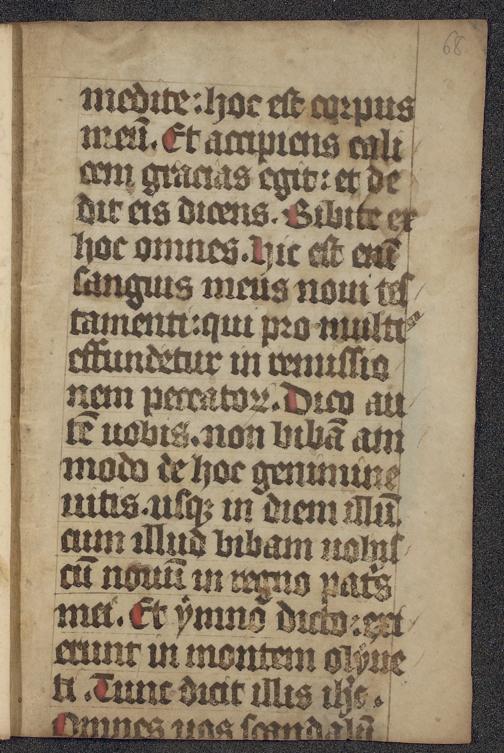 68
medite: hoc est corpus
meū. Et accipiens cali
cem gracias egit: et de
dit eis dicens. Bibite ex
hoc omnes. hic est enī
sanguis meus noui tes
tamenti: qui pro multis
effundetur in remissio
nem peccatoꝝ. Dico au
tē uobis. non bibā am
modo de hoc genimine
uitis. usqꝫ in diem illū.
cum illud bibam uobis
cū nouū in regno patris
mei. Et ymno dicto: exi
erunt in montem olyue
ti. Tunc dicit illis ihc.
Omnes uos scandalū